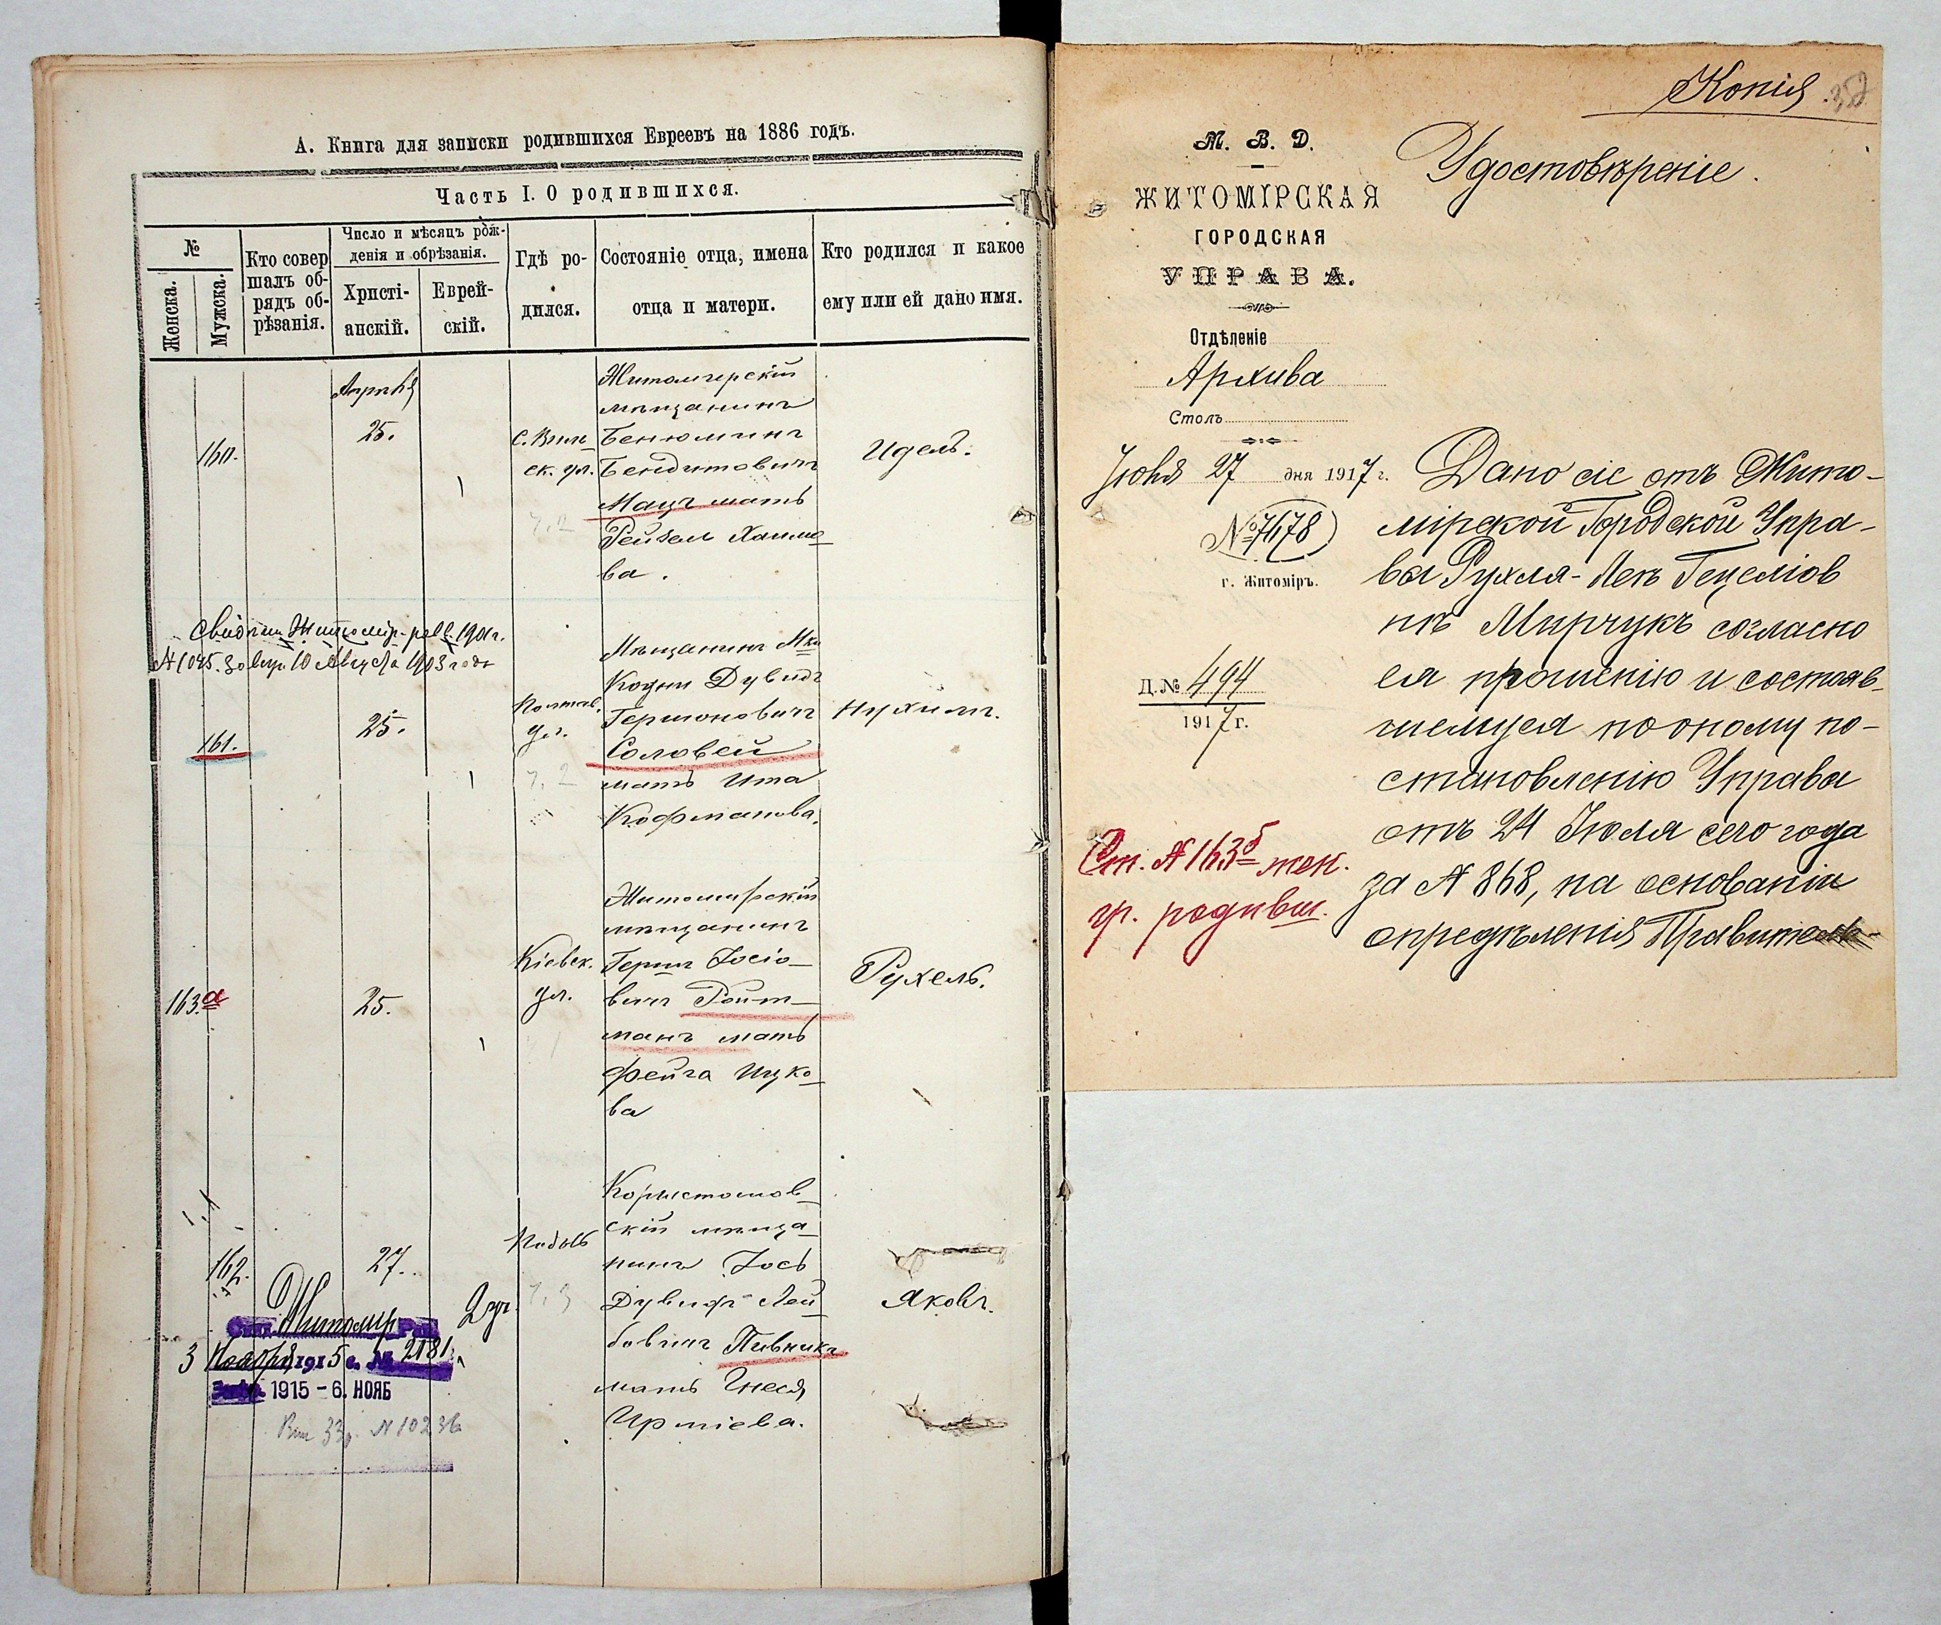 А. Книга для записки родившихся Евреевъ на 1886 годъ.
Часть I. О родившихся.
№
Женска.
Мужска.
Кто совер
шалъ об-
рядъ об-
рѣзанія.
Число и мѣсяцъ рож-
денія и обрѣзанія.
Христі-
анскій.
Еврей-
скій.
Гдѣ ро-
дился.
Состояніе отца, имена
отца и матери.
Кто родился и какое
ему или ей дано имя.
160.
Апрѣля
25.
с. Вильск. ул.
Житомирскій
мѣщанинъ
Бенюминъ
Бендитовичъ
Мацъ мать
Рейзель Хаимо
ва.
Идель.
161.
25.
Полтав.
ул.
ч. 2
Мѣщанинъ М-ка
Кодни Дувидъ
Гершоновичъ
Соловей
мать Ита
Кофманова.
Нухимъ.
163.а
25.
Кіевск.
ул.
Житомирскій
мѣщанинъ
Гершъ Іосіо-
вичъ Ройт-
манъ мать
Фейга Ицко-
ва
Рухель.
162.
27.
Подолъ
ч. 3
Коростошов-
скій мѣща-
нинъ Іось
Дувидъ Лей-
бовичъ Пивникъ
мать Гнеся
Ирміева.
Яковъ.
Житомір Рав
3 Ноября 1915 г. № 2181
1915 - 6. НОЯБ
N 10236
Копія
Удостовѣреніе.
М. В. Д.
ЖИТОМІРСКАЯ
ГОРОДСКАЯ
УПРАВА.
Отдѣленіе
Архива
Столъ
Іюля 27 дня 1917 г.
№ 7478
г. Житоміръ.
Д. № 494
1917 г.
Ст. № 163б жен.
гр. родивш.
Дано сіе отъ Жито-
мірской Городской Упра-
вы Рухля-Леѣ Гецеліов
нѣ Мирчукъ согласно
ея прошенію и состояв-
шемуся по оному по-
становленію Управы
отъ 24 Іюля сего года
за № 868, на основаніи
опредѣленія Правитель-